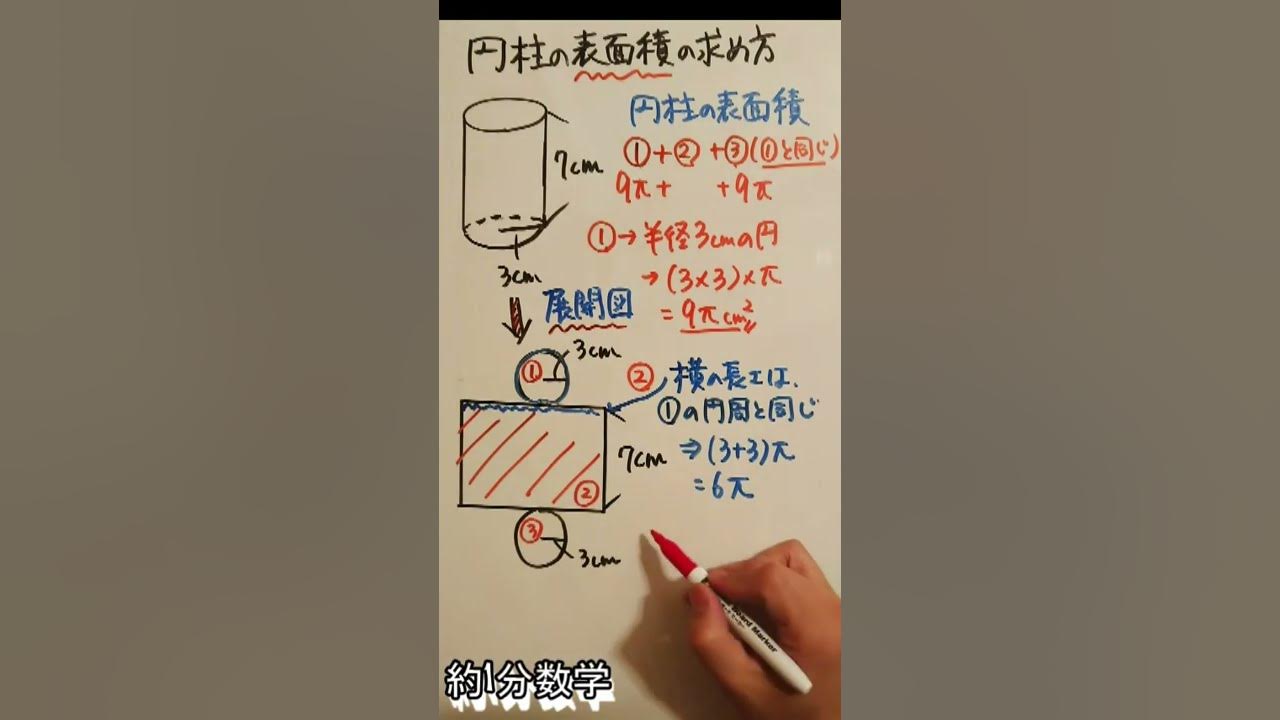 円柱の表面積の求め方
円柱の表面積
①+②+③(①と同じ)
9π+ +9π
7cm
3cm
①→半径3cmの円
→(3×3)×π
=9πcm²
展開図
3cm
①
② 横の長さは、
①の円周と同じ
⇒(3+3)π
=6π
7cm
②
③
3cm
約1分数学